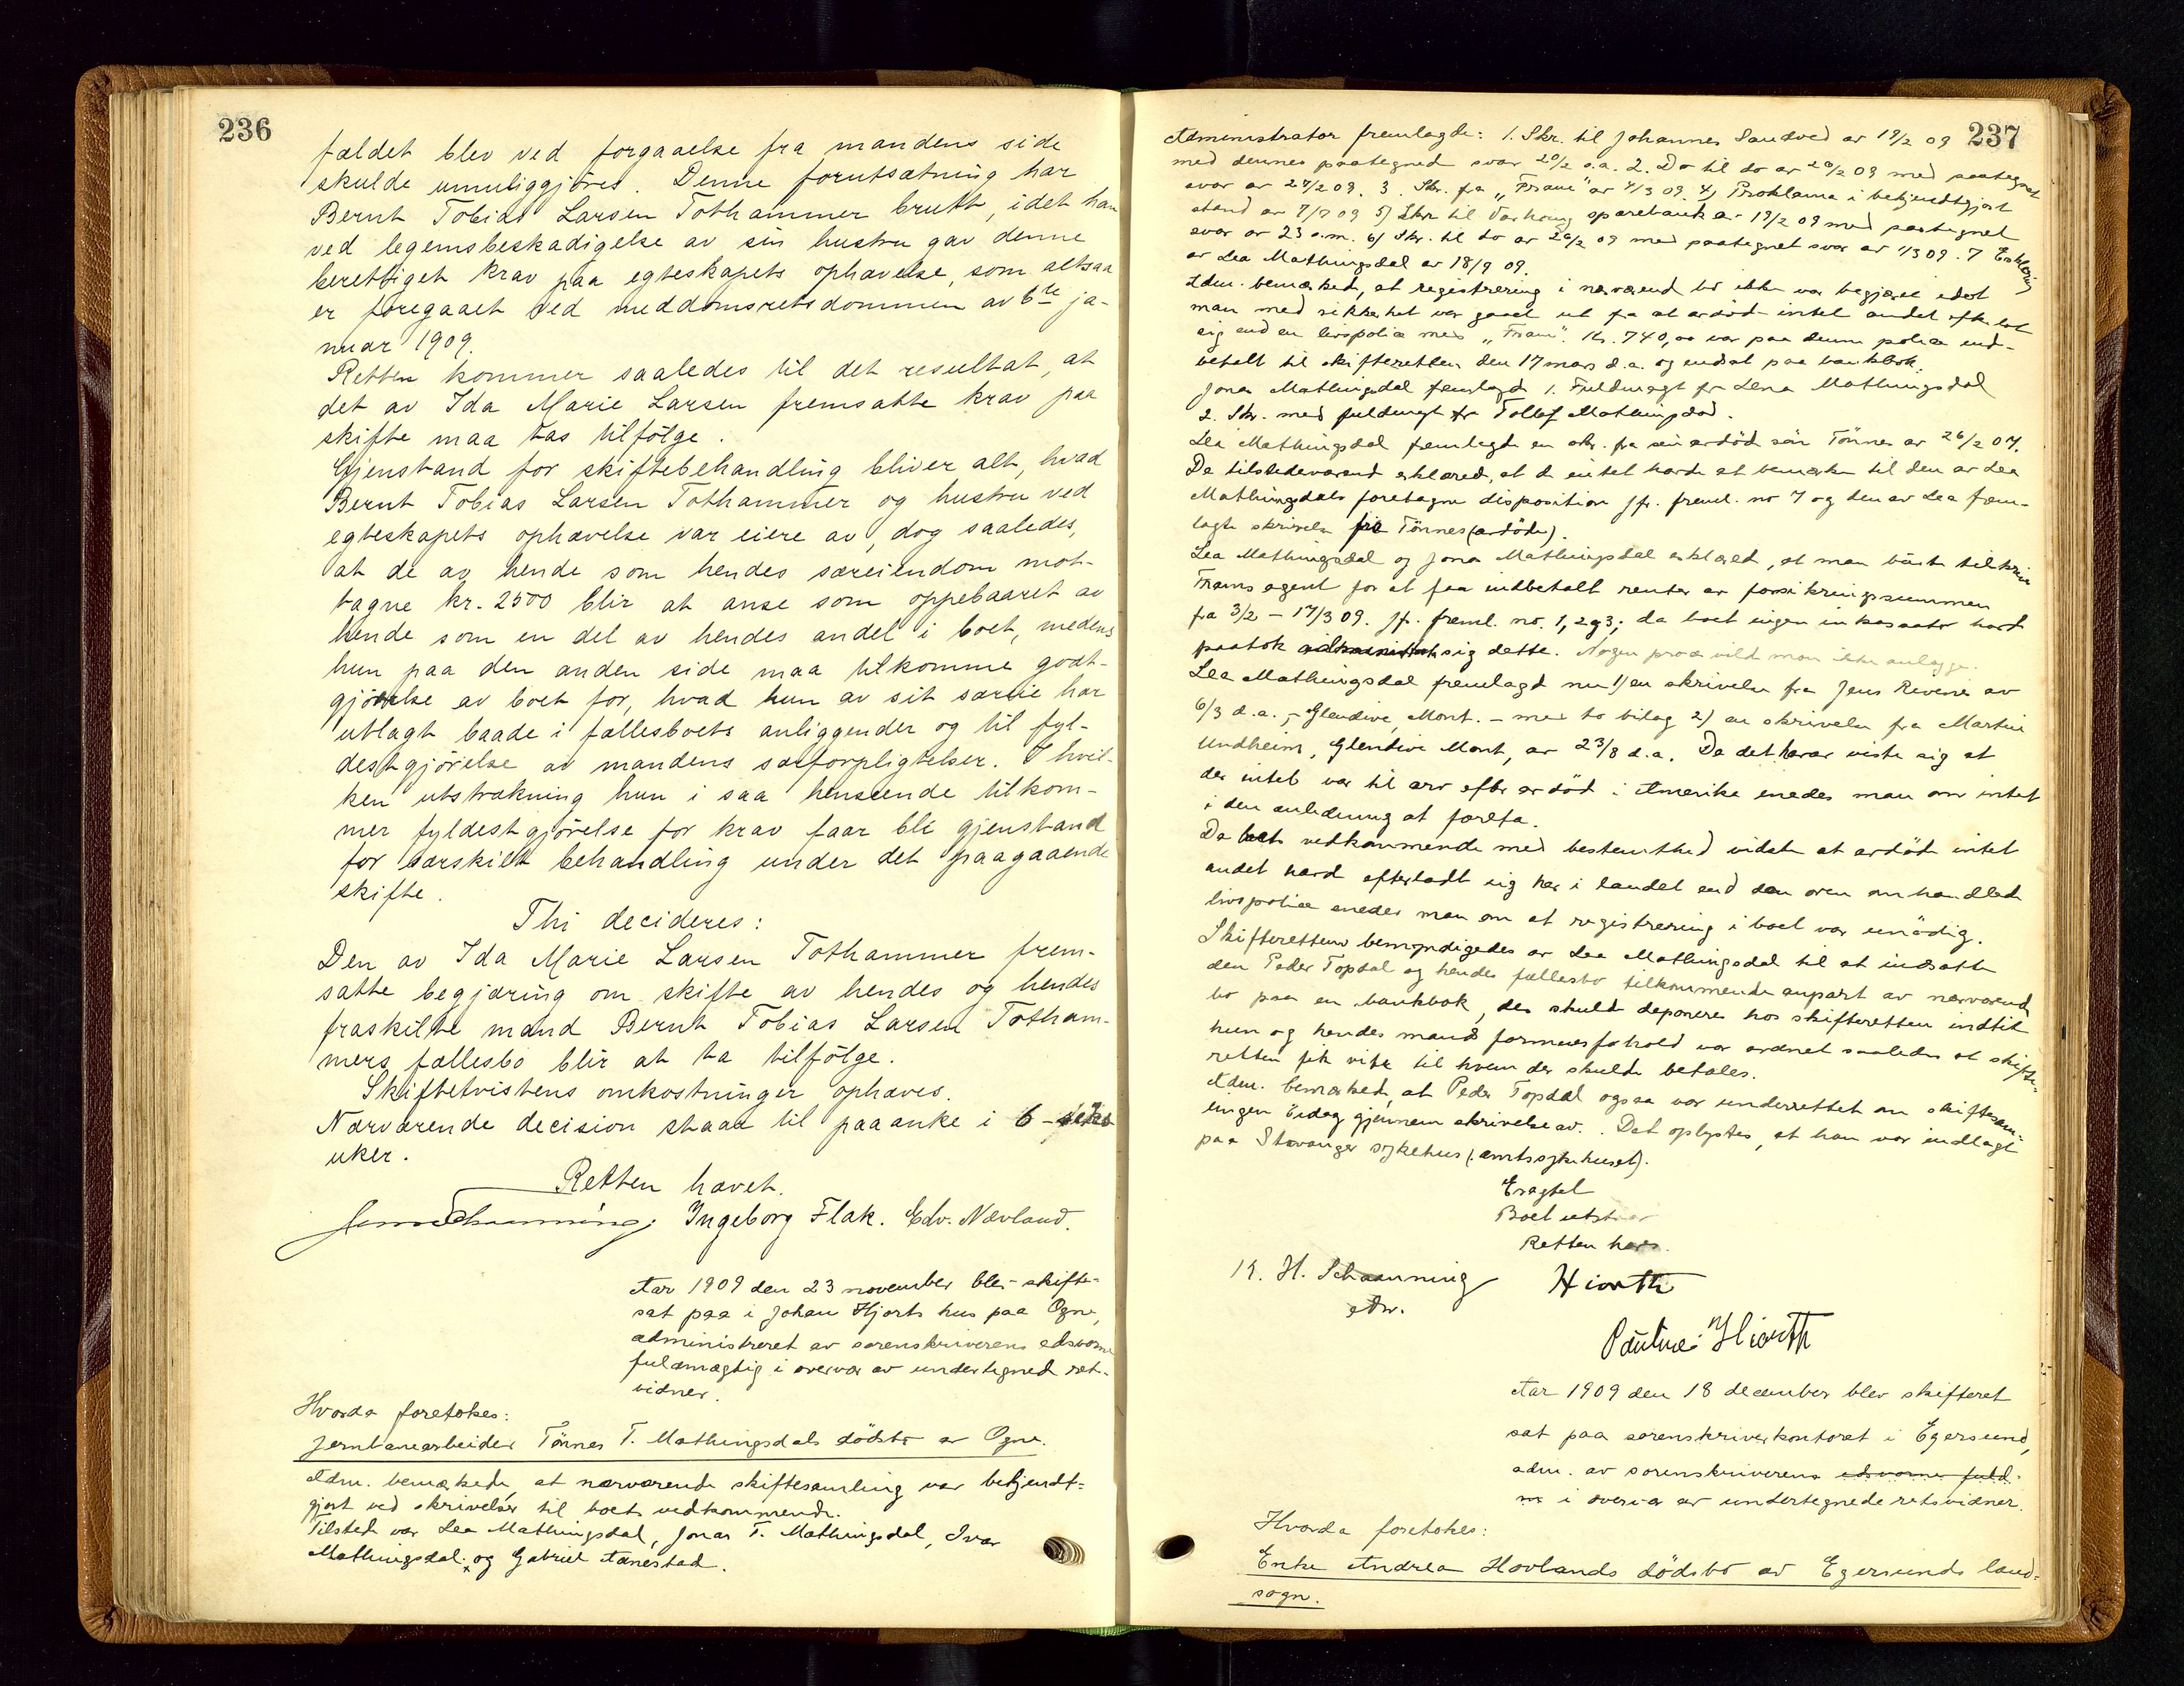 236
fældet blev ved forgaaelse fra mandens side
skulde umuliggjöres. Denne forutsætning har
Bernt Tobias Larsen Tothammer brutt, idet han
ved legemsbeskadigelse av sin hustru gav denne
berettiget krav paa egteskapets ophævelse, som altsaa
er foregaaet ved meddomsretsdommen av 6te ja-
nuar 1909.
Retten kommer saaledes til det resultat, at
det av Ida Marie Larsen fremsatte krav paa
skifte maa tas tilfölge.
Gjenstand for skiftebehandling bliver alt, hvad
Bernt Tobias Larsen Tothammer og hustru ved
egteskapets ophævelse var eiere av, dog saaledes,
at de av hende som hendes særeiendom mot-
tagne kr. 2500 blir at anse som oppebaaret av
hende som en del av hendes andel i boet, medens
hun paa den anden side maa tilkomme godt-
gjörelse av boet for, hvad hun av sit særeie har
utlagt baade i fællesboets anliggender og til fyl-
destgjörelse av mandens særforpligtelser. I hvil-
ken utstrækning hun i saa henseende tilkom-
mer fyldestgjörelse for krav faar bli gjenstand
for særskilt behandling under det paagaaende
skifte.
Thi decideres:
Den av Ida Marie Larsen Tothammer frem-
satte begjæring om skifte av hendes og hendes
fraskilte mand Bernt Tobias Larsen Totham-
mers fællesbo blir at ta tilfölge.
Skiftetvistens omkostninger ophæves.
Nærværende decision staar til paaanke i 6 - seks
uker.
Retten hævet.
Ingeborg Flak. Edv. Nævland.
Aar 1909 den 23 november blev skifte-
sat paa i Johan Hjorts hus paa Ogne,
administreret av sorenskriverens edsvorne
fuldmægtig i overvær av undertegned ret-
vidner.
Hvorda foretokes:
Jernbanearbeider Tönnes T. Mathingsdals dödsbo av Ogne.
Adm. bemærkede, at nærværende skiftesamling var bekjendt-
gjort ved skrivelser til boets vedkommende.
Tilsted var Lea Mathingsdal, Jonas T. Mathingsdal, Ivar
Mathingsdal x og Gabriel Aanestad.
237
Administrator fremlagde: 1. Skr. til Johannes Sandved av 19/2 09
med dennes paategned svar 20/2 s.a. 2. Do til do av 20/2 09 med paategnet
svar av 24/2 09. 3. Skr. fra "Fram" av 4/3 09. 4) Proklama i bekjendtgjort
stand av 7/7 09 5) Skr til Varhaug sparebank av 19/2 09 med paategnet
svar av 23 s.m. 6) Skr. til do av 20/2 09 med paategnet svar av 1/3 09. 7 Erklæring
av Lea Mathingsdal av 18/9 09.
Adm. bemærked, at registrering i nærværend bo ikke var begjæret idet
man med sikkerhet var gaaet ut fra at avdöde intet andet efterlot
sig end en livspolice med "Fram". Kr. 740,00 var paa denne police ind-
betalt til skifteretten den 17 mars d.a. og indsat paa bankbok.
Jonas Mathingsdal fremlagd 1. Fuldmagt fra Lena Mathingsdal
2. Skr. med fuldmagt fra Tollef Mathingsdal.
Lea Mathingsdal fremlagde en skr. fra sin avdöd sön Tönnes av 26/2 07.
De tilstedeværend erklæred, at de intet havde at bemærke til den av Lea
Mathingsdals foretagne disposition jfr. freml. no 7 og den av Lea frem-
lagte skrivelse fra Tönnes (avdöde).
Lea Mathingsdal og Jonas Mathingsdal erklæret, at man burde tilskrive
Frams agent for at faa indbetalt renter av forsikringssummen
fra 3/2 - 17/3 09. jfr. freml. no. 1, 2 og 3; da boet ingen inkassator havde
paatok sig dette. Nogen proces vilde man ikke anlægge.
Lea Mathingsdal fremlagd nu 1) en skrivelse fra Jens Revene av
6/3 d.a., - Glendive, Mont. - med to bilag 2) en skrivelse fra Martin
Undheim, Glendive Mont, av 23/8 d.a. Da det herav viste sig at
der intet var til arv efter avdöd i Amerika enedes man om intet
i den anledning at foreta.
Da boets vedkommende med bestemthed vidste at avdöde intet
andet havd efterladt sig her i landet end den oven omhandled
livspolice enedes man om at registrering i boet var unödig.
Skifteretten bemyndigedes av Lea Mathingsdal til at indsætte
den Peder Topdal og hendes fællesbo tilkommende anpart av nærværend
bo paa en bankbok, der skulde deponeres hos skifteretten indtil
hun og hendes mands formuesforhold var ordnet saaledes at skifte-
retten fik vite til hvem der skulde betales.
Adm. bemærked, at Peder Topdal ogsaa var underrettet om skiftesam-
lingen idag gjennem skrivelse av. . Det oplystes, at han var indlagt
paa Stavanger sykehus (: amtssykehuset).
Eragtet
Boet utstaar
Retten hævet.
K. H. Schaanning
edsv.
Hiorth
Pauline Hiorth
Aar 1909 den 18 december blev skifteret
sat paa sorenskriverkontoret i Egersund,
adm. av sorenskriverens edsvorne fuld-
m i overvær av undertegnede retsvidner.
Hvorda foretokes:
Enke Andrea Hovlands dödsbo av Egersunds land-
sogn.